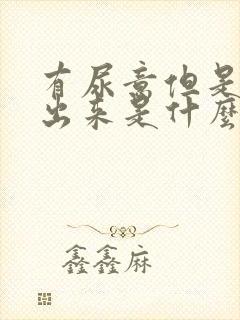 有尿意但是
出来是什麼
鑫鑫麻